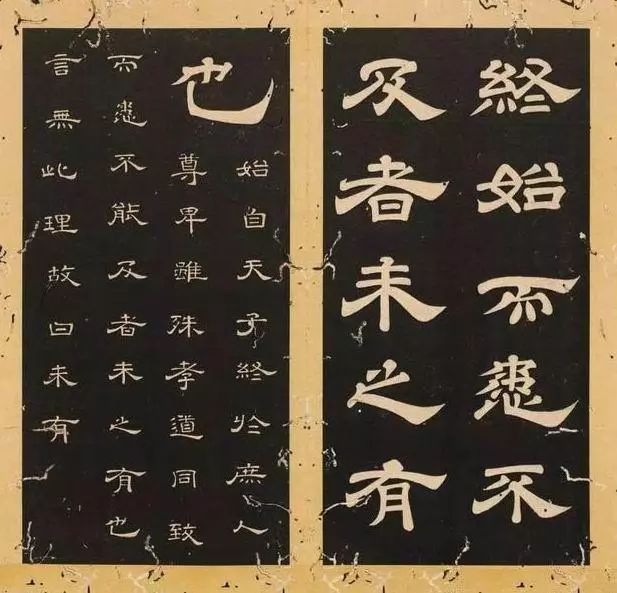 終始而患不
及者未之有
也
始自天子終於庶人
尊卑雖殊孝道同致
而患不能及者未之有也
言無此理故曰未有